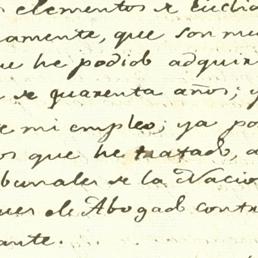 s elementos de Euclid
amente, que son mu
ue he podido adquiri
s de quarenta años; y
e mi empleo; ya po
os que he tratado, a
bunales de la Nacio
ues de Abogado contr
ante.